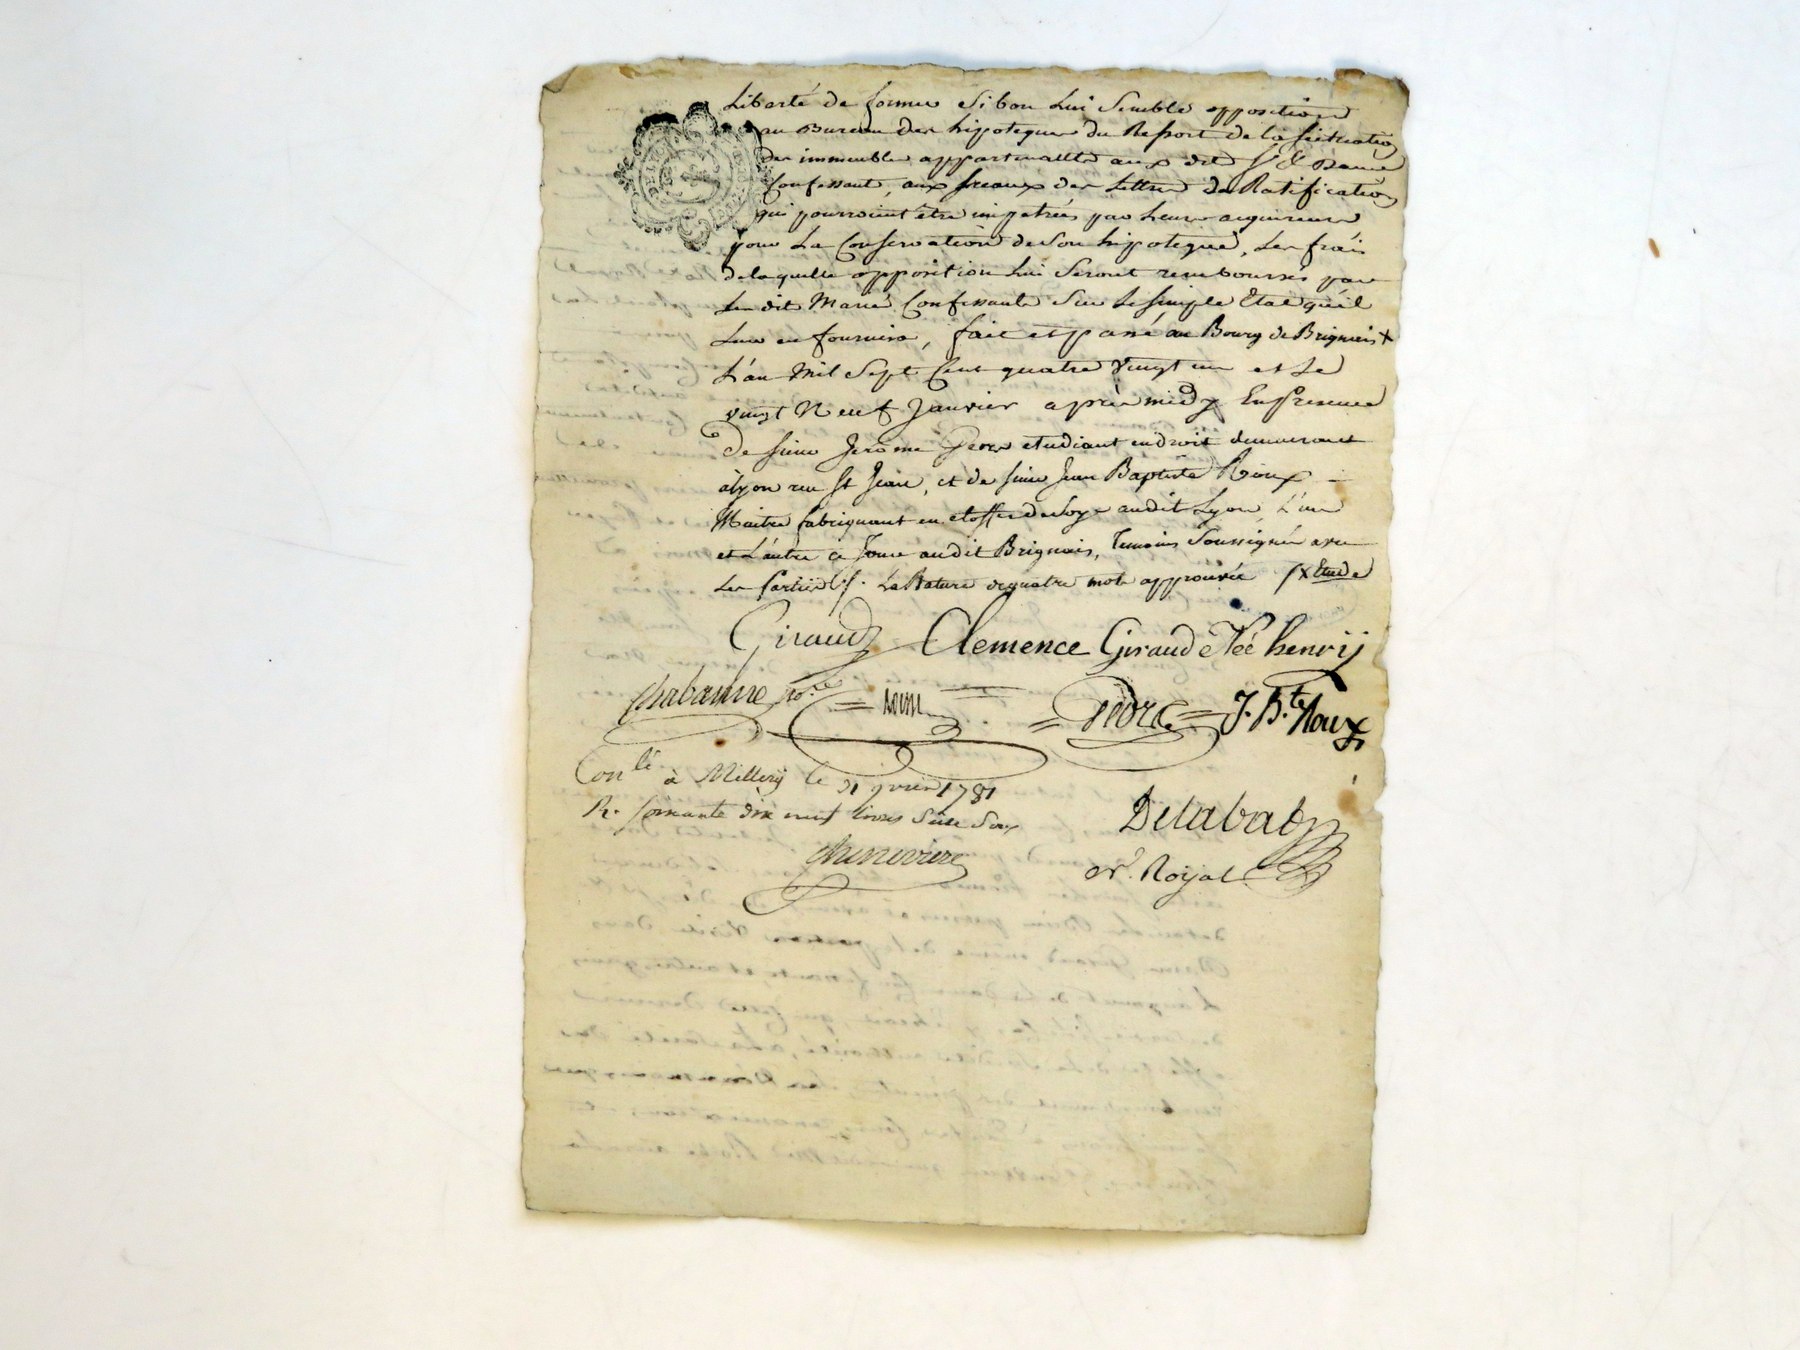 Liberté de former si bon Lui Semble opposition
au Bureau des hippoteques du Ressort de la situation
des immeubles appartenants aux dits Sr & Dame
Confessants, aux sceaux des Lettres de Ratification
qui pourroient être impetrées par Leurs acquereurs
pour La Conservation de Son hipoteque, Les frais
de laquelle opposition Lui Seront remboursés par
Les dits Mariés Confessants Sur Le simple Etat qu'il
Leur en fournira, fait et passé au Bourg de Brignais +
L'an Mil Sept Cent quatre vingt un et Le
vingt Neuf Janvier après midy En presence
De sieur Jerôme etudiant en droit demeurant
à Lyon rue St Jean, et de sieur Jean Baptiste Roux
Maitre fabriquant en etoffes de Soye audit Lyon, L'un
et L'autre ce Jour audit Brignais, Temoins Soussignés avec
Les Parties ./. La Rature de quatre mots approuvée /x Etude
Giraud Clemence Giraud Née henrij
Chabanne
J. B.te Roux
Con.lé à Millerij le 31 jvier 1781
R. soixante dix neuf livres Seize Sous
Delabal
Cheneviere
nr. Roijal